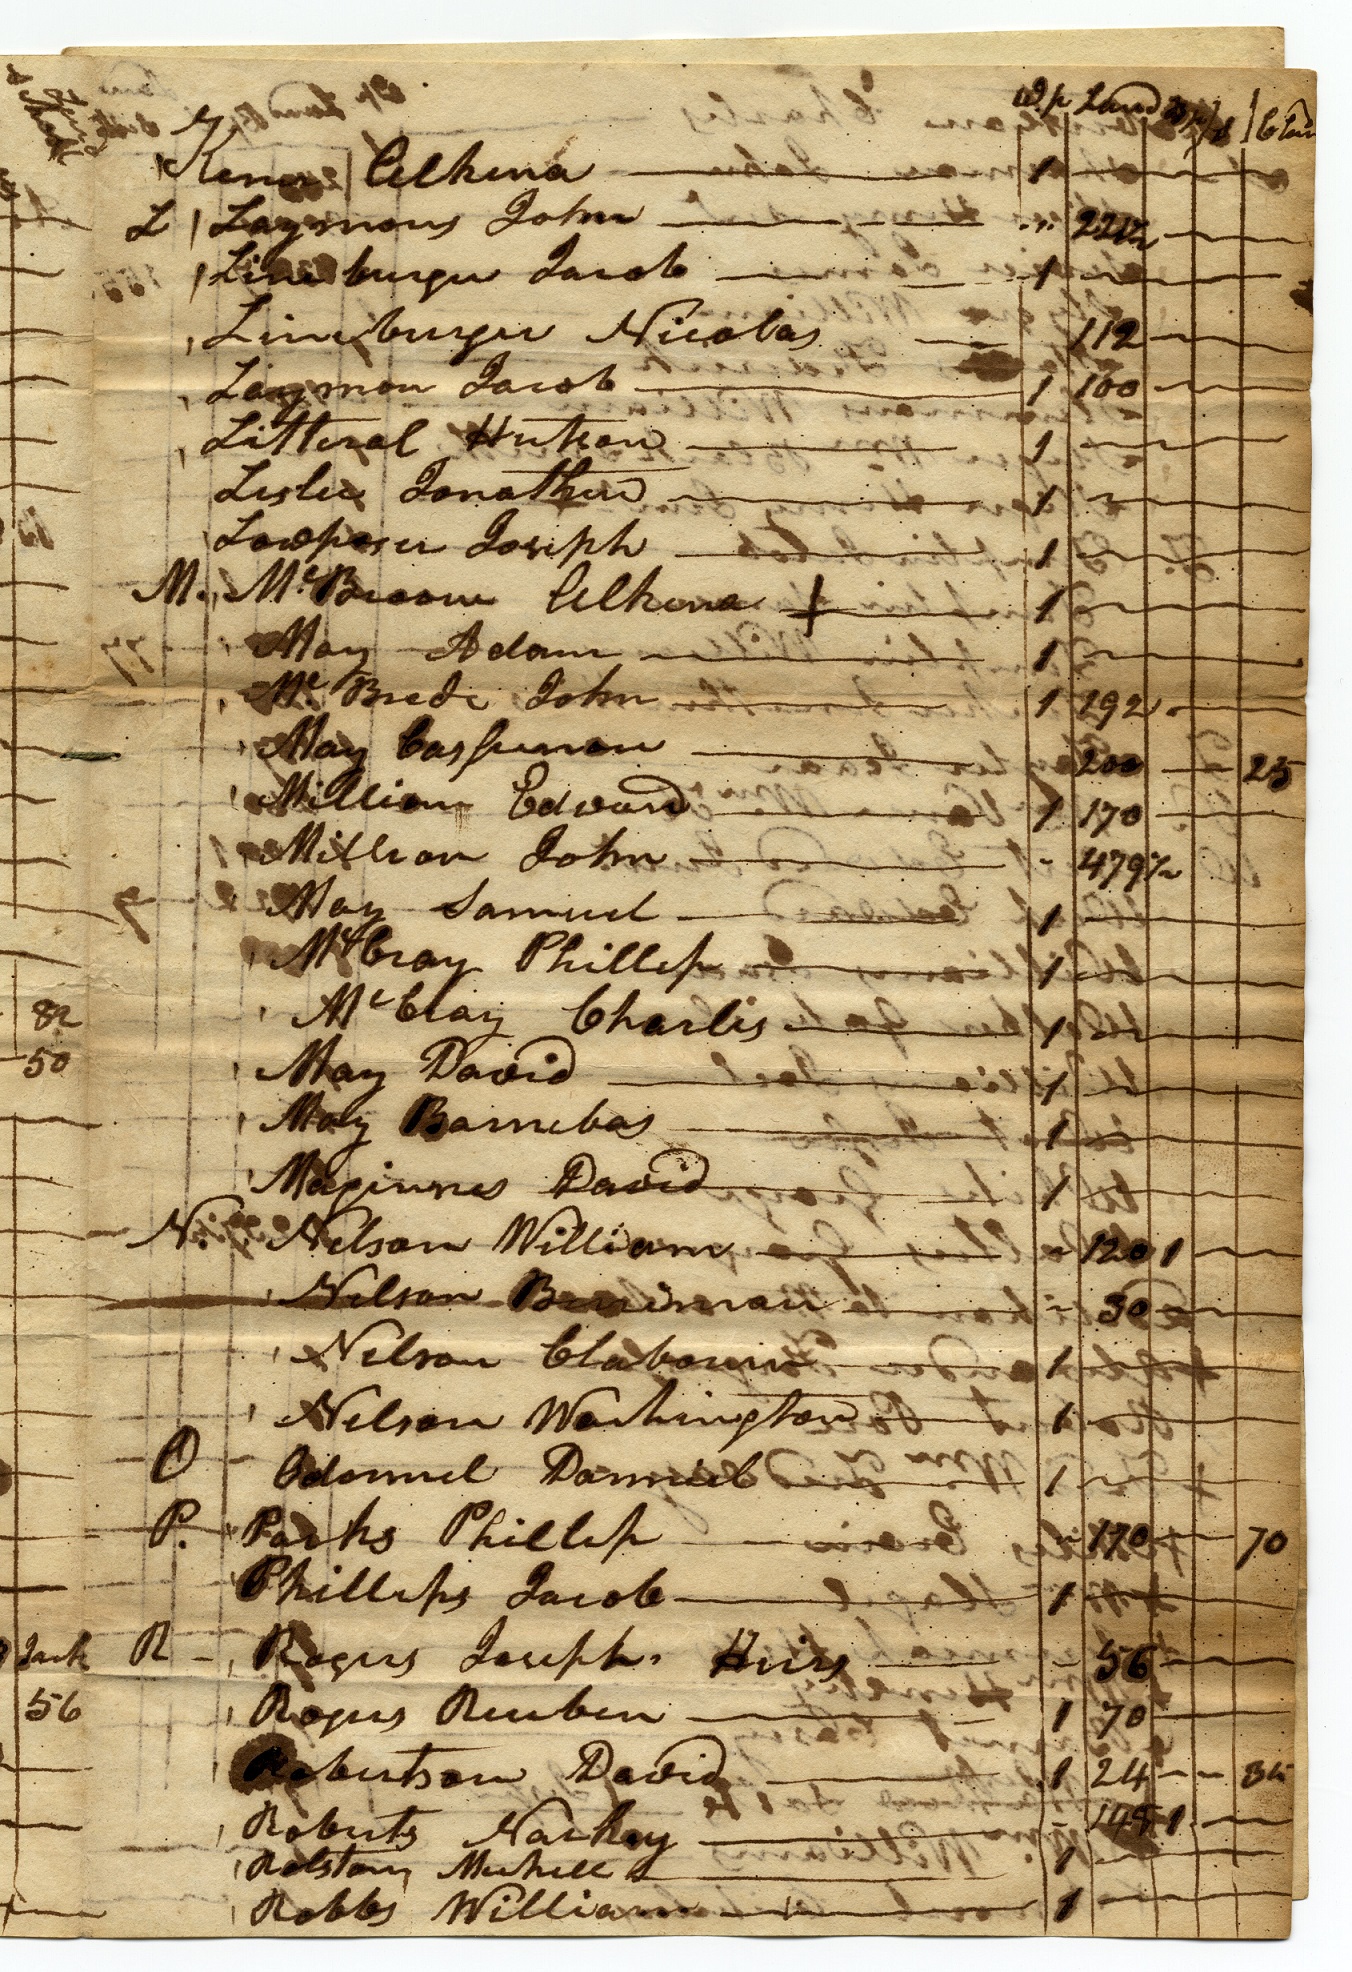 W.p Land
Kener Elkena 1
L Laymons John " 221½
Lineburger Jacob 1
Lineburger Nicolas 112
Laymon Jacob 1 100
Litteral Hutson 1
Leslie Jonathan 1
Lowposer Joseph 1
M. McBroom Elkena + 1
May Adam 1
McBrede John 1 192
May Cassimon 200 25
Million Edward 1 170
Million John - 479½
May Samuel 1
McCray Phillip 1
McCray Charlis 1
May David 1
May Barnebas 1
Maginnes David 1
N. Nelson William - 120 1
Nelson Berriman - 30
Nelson Clabourn 1
Nelson Washington 1
O Odonnel Danniel 1
P. Parks Phillip - 170 70
Phillips Jacob 1
R - Rogers Joseph Heirs - 56
Rogers Reuben 1 70
Robertson David 1 24
Roberts Nackey - 148 1
Rolston Michell 1
Robbs William 1
50
56